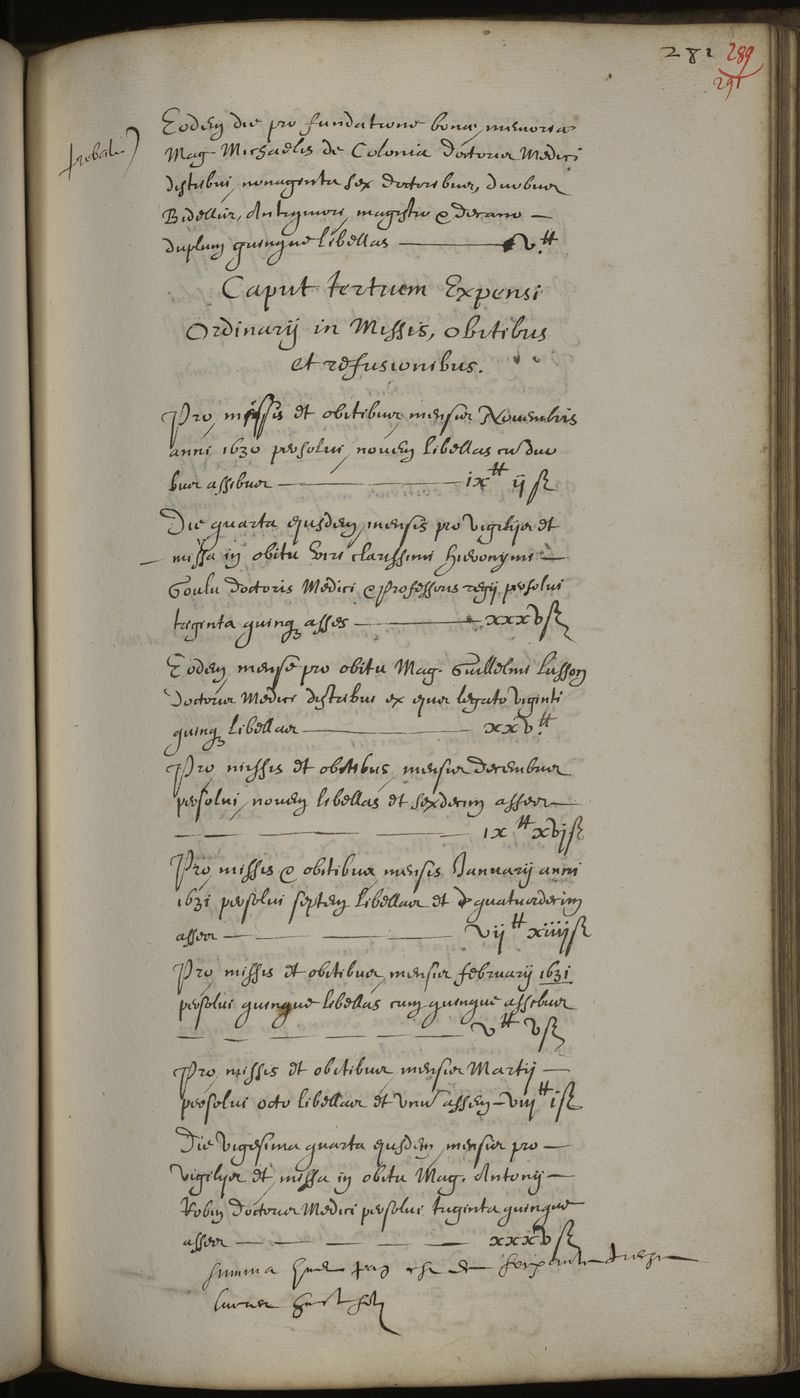 281 289
291
Eodem die pro fundatione bonæ memoriæ
Mag. Michaelis de Colonia doctoris Medici
distribui nonaginta sex doctoribus, duobus
Bidellis, Antiquiori magistro & decano —
duplum quinque libellas — v.tt
Caput tertium Expensi
Ordinarij in Missis, obitibus
et refusionibus.
Pro missis et obitibus mensis Novembris
anni 1630 persolui novem libellas cũ duo
bus assibus — ix tt ij ſ
Die quarta ejusdem mensis pro vigilijs et
missa in obitu viri clarissimi Hieronymi —
Goulu doctoris Medici & Professoris regij persolui
triginta quinq asses — xxxv ſ
Eodem mense pro obitu Mag. Guillelmi Lusson
doctoris Medici distribui ex ejus legato viginti
quinq libellas — xxv tt
Pro missis et obitibus mensis decembris
persolui novem libellas et sexdecim asses —
ix tt xvj ſ
Pro missis & obitibus mensis Januarij anni
1631 persolui septem libellas et quatuordecim
asses — vij tt xiiij ſ
Pro missis et obitibus mensis februarij 1631
persolui quinque libellas cum quinque assibus
v tt v ſ
Pro missis et obitibus mensis Martij —
persolui octo libellas et unũ assem — viij tt i ſ
Die vigesima quarta ejusdem mensis pro —
vigilijs et missa in obitu Mag. Antonij —
Robin doctoris Medici persolui triginta quinque
asses — xxxv ſ
summa